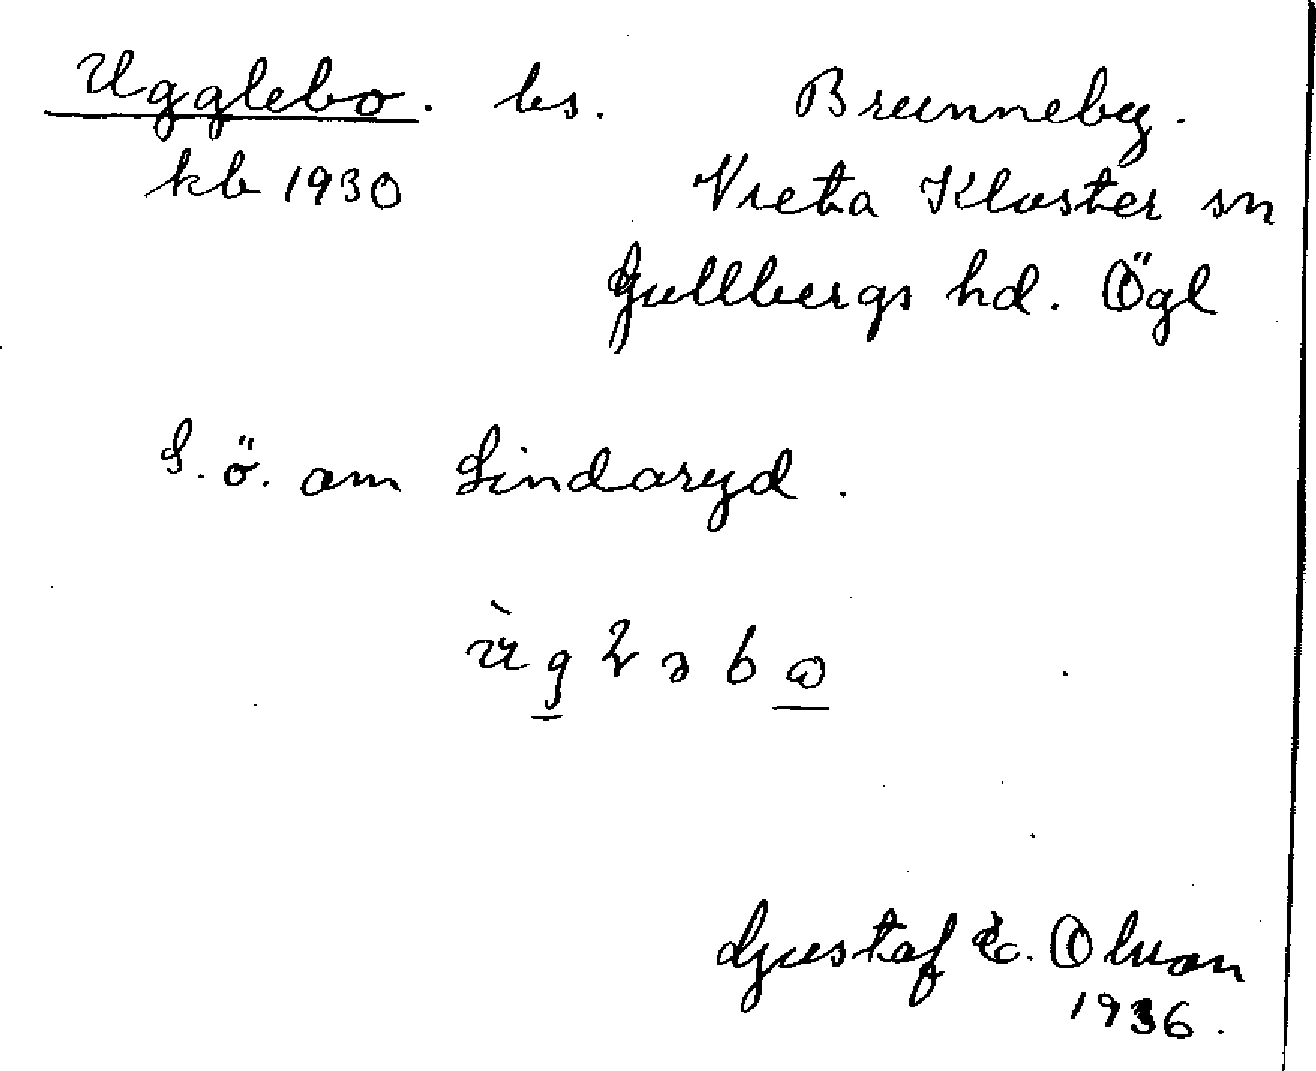 Ugglebo. ls. Brunneby.
kb 1930 Vreta Kloster sn
Gullbergs hd. Ögl
S. ö. om Lindaryd.
Gustaf E. Olsson
1936.